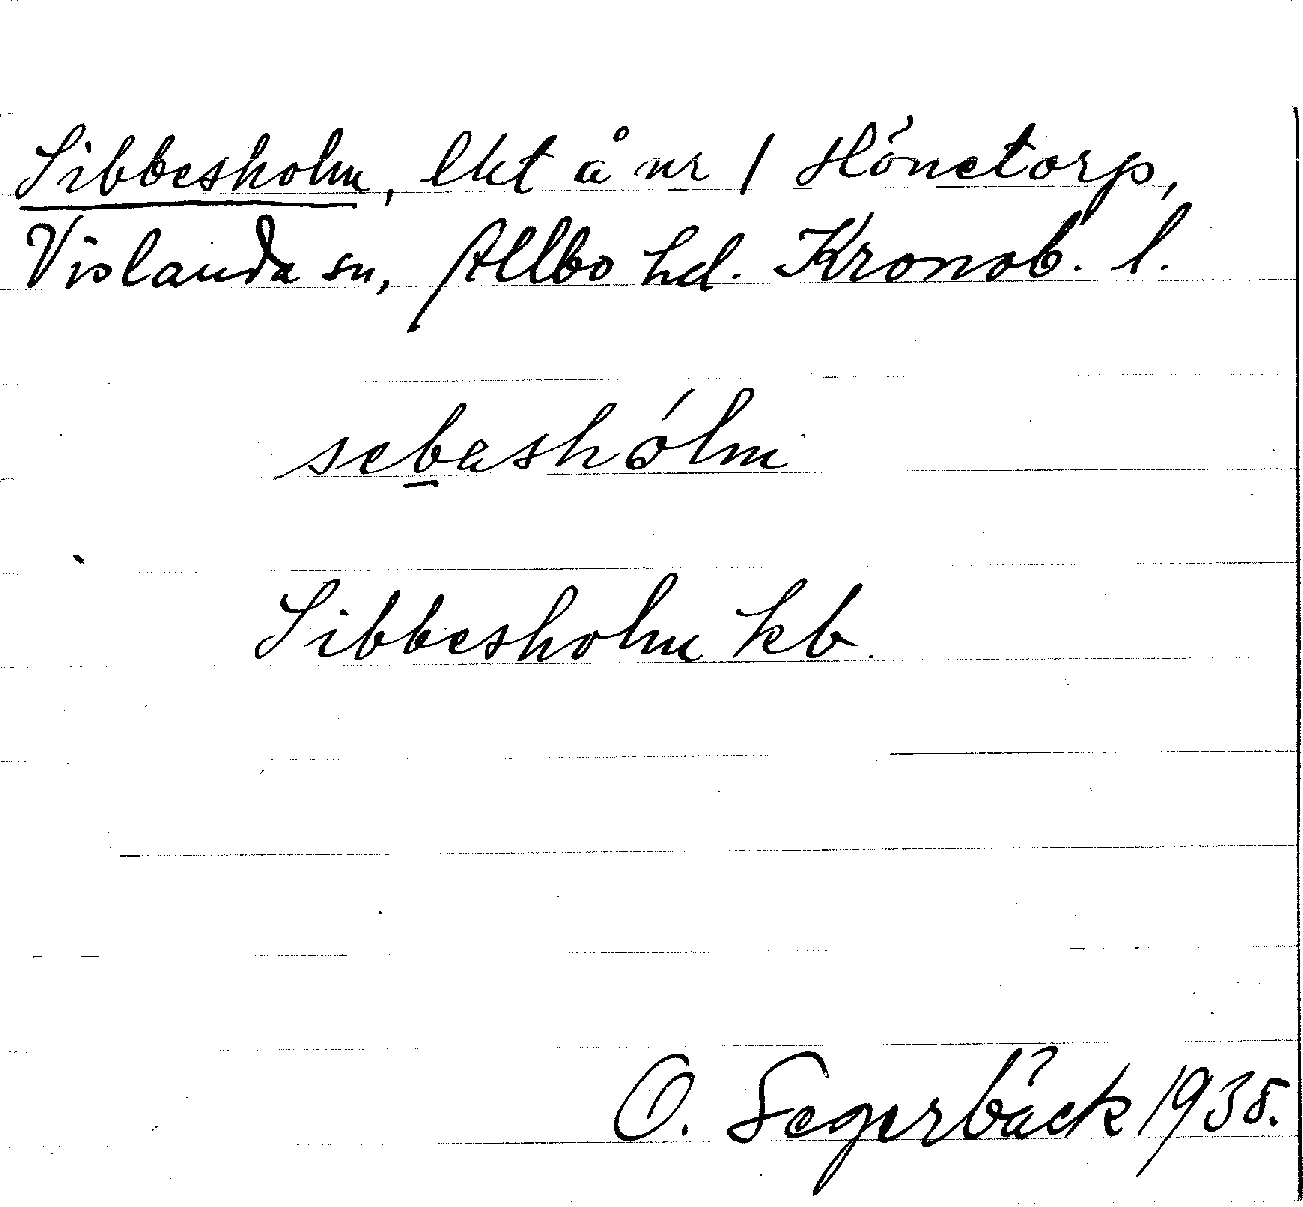 Sibbesholm, lht å nr 1 Hönetorp,
Vislanda sn, Allbo hd. Kronob. l.
sebashólm
Sibbesholm kb.
O. Segerbäck 1935.